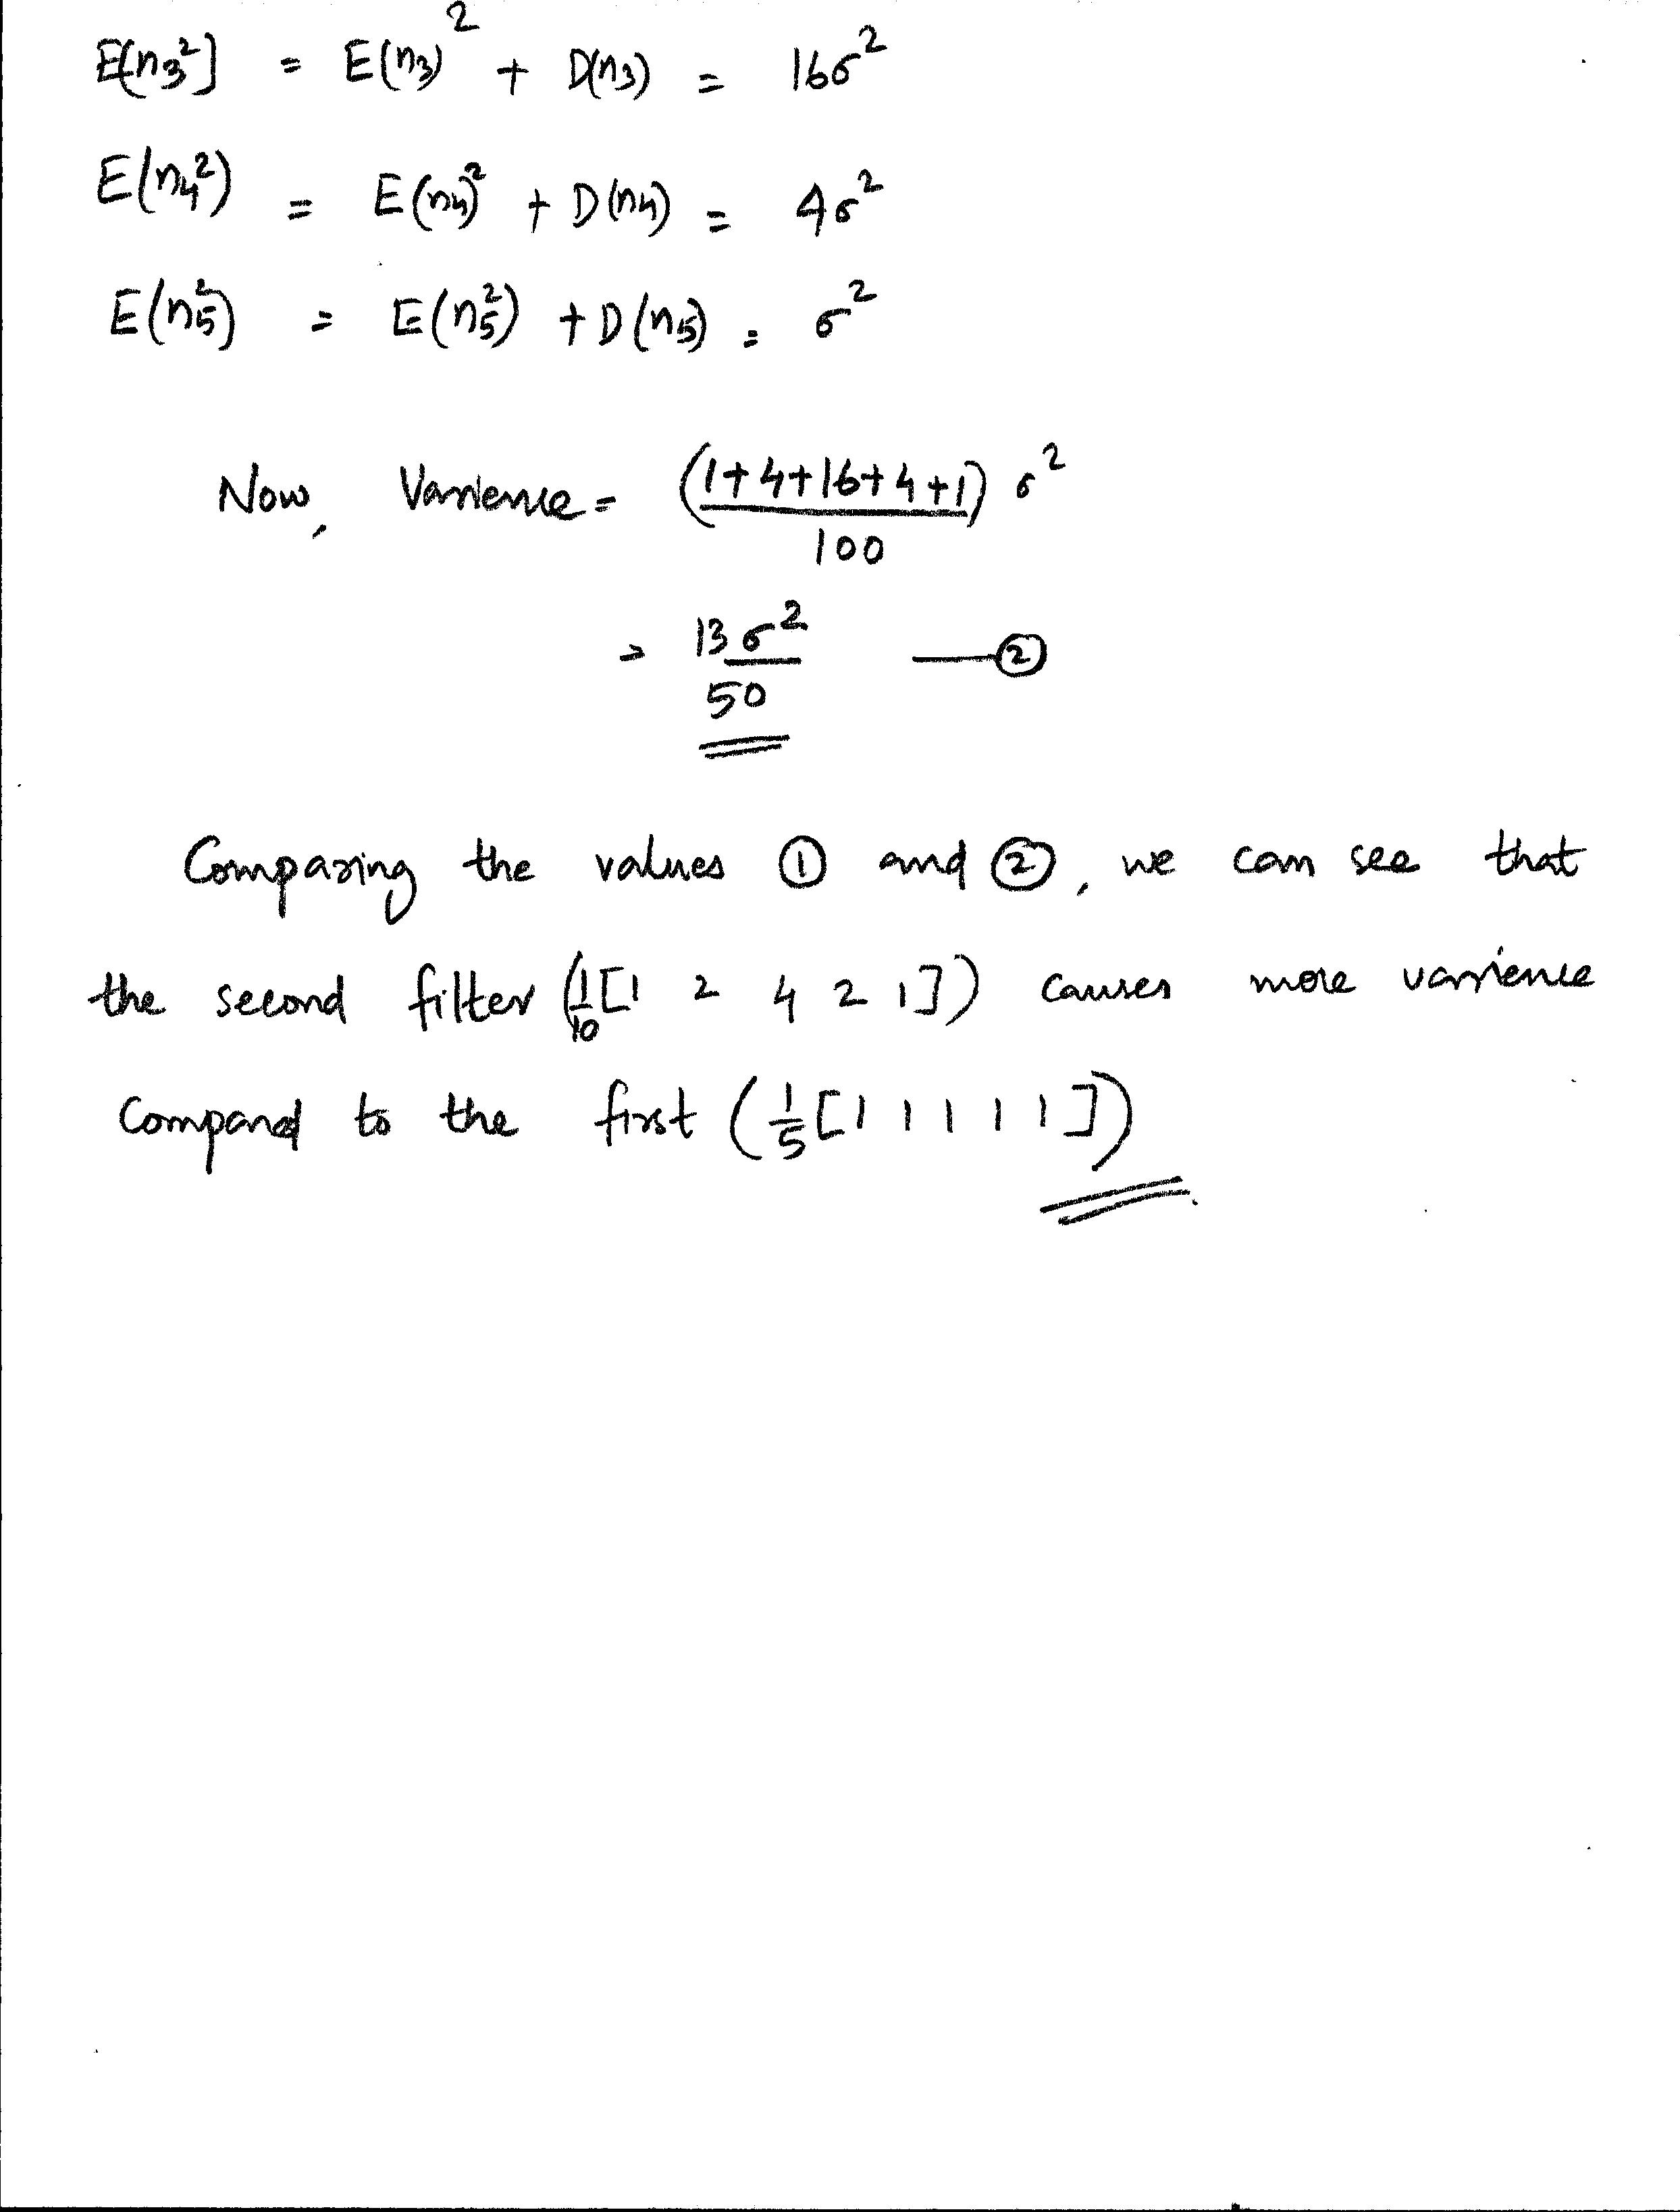 E[n₃²] = E(n₃)² + D(n₃) = 16σ²
E(n₄²) = E(n₄)² + D(n₄) = 4σ²
E(n₅²) = E(n₅²) + D(n₅) = σ²
Now, Varience = (1+4+16+4+1)/100 σ²
= 13σ²/50 —②
Comparing the values ① and ②, we can see that
the second filter (1/10[1 2 4 2 1]) causes more varience
compared to the first (1/5[1 1 1 1 1])